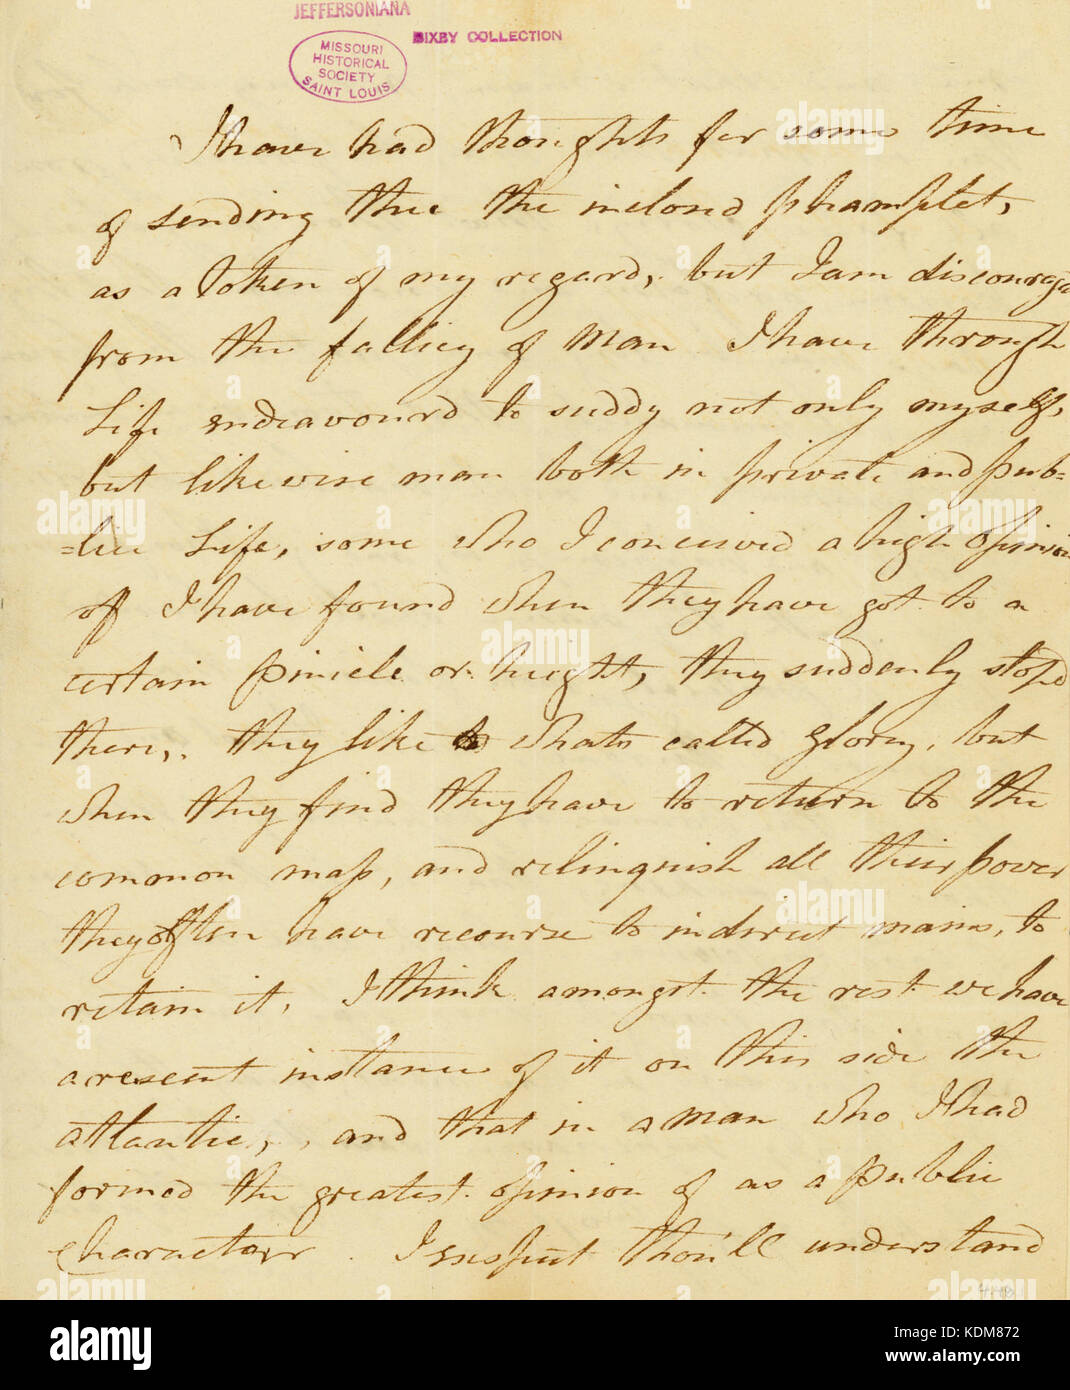 JEFFERSONIANA
BIXBY COLLECTION
MISSOURI
HISTORICAL
SOCIETY
SAINT LOUIS
I have had thoughts for some time
of sending thee the inclosed phamplet,
as a token of my regard, but I am discourage
from the fallicy of man I have through
Life endeavourd to suddy not only myself,
but likewise man both in private and pub=
=lic Life, some who I conceived a high opinion
of I have found when they have got to a
certain piniele or height, they suddenly stoped
there, they like whats called glory, but
when they find they have to return to the
common mass, and relinquish all their power
they often have recourse to indirect mains, to
retain it, I think amongst the rest we have
a resent instance of it on this side the
atlantic, and that in a man who I had
formed the greatest opinion of as a public
Character. I suspect thou'll understand
alamy
a
Image ID: KDM872
www.alamy.com